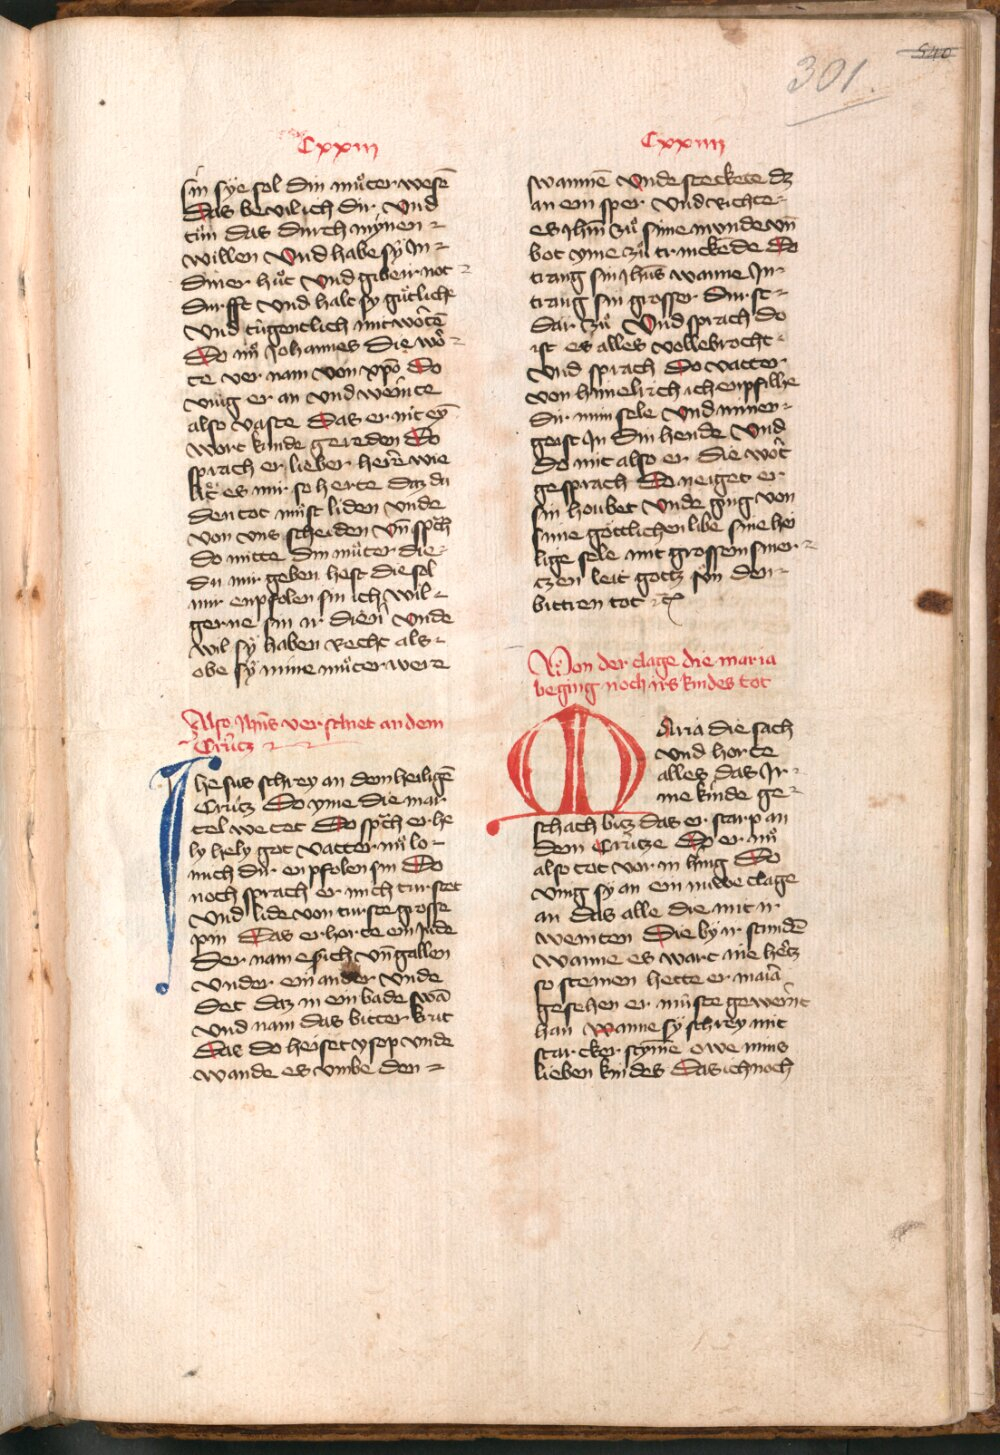 540
301.
Cxxiii
sin sye sol din muͦter wesē
Das bevilich dir Vnd
tuͦn das durch mynen
willen Vnd habe sy jn
diner huͦt Vnd gib ir not
durfft Vnd halt sy guͤtliche
Vnd tugentlich mit wortē
Do nuͦ Johannes die wo
te ver nam von xp̄o Do
ving er an vnd weinte
also vaste Das er nit ey̅
wort kunde gereden Do
sprach er lieber herre wie
lit es mir so herte daz du
den tot muͦst liden vnde
von vns scheiden vn̄ sp̄ch
do mitte din muͦter die
du mir geben hest die sol
mir enpfolen sin ich wil
gerne sin ir diener vnde
wil sy haben recht als
obe sy mine muͦter were
Also Jhūs ver schiet an dem
Crutz
Jhesus schrey an dem heiligē
Crutz Do yme die mar
tel we tet Do sp̄ch er he
ly hely got vatter nuͦ lo
mich dir enpfolen sin Do
noch sprach er mich turstet
Vnd lide von turste grosse
pin Das erhorte ein Jude
Der nam essich vn̄ gallen
vnder ein ander vnde
det daz in ein bade swā
vnd nam das bitter krut
Das do heiset ysop vnde
wande es vmbe den
Cxxiiii
swammē Vnde steckete dz
an ein sper Vnd richte
es Jhm̄ zuͦ sime munde vn̄
bot yme zuͦ trinckēde Do
trang sin Jhūs wanne Jn
trang sin grosser durst
dar zuͦ Vnd sprach do
ist es alles vollebrocht
Vnd sprach Do vatter
von himelrich ich enpfilhe
dir min sele Vnd minen
geist Jn din hende Vnd
do mit also er die wort
gesprach Do neiget er
sin houbet Vnde ging von
sime goͤttlichen libe sine hei
lige sele mit grossem smer
czen leit gotz sun den
bittren tot ꝛc
Von der clage die maria
beging noch irs kindes tot
Maria die sach
vnd horte
alles das Jr
me kinde ge
schach bitz das er starp an
dem Crutze Do er nuͦ
also tot vor in hing Do
ving sy an ein nuwe clage
an das alle die mit ir
weinten Die by ir stundē
wanne es wart nie hertz
so steinen hette er maria
gesehen er muͤste geweint
han wanne sy schrey mit
starcker stym̄e owe mins
lieben kindes Das ich noch